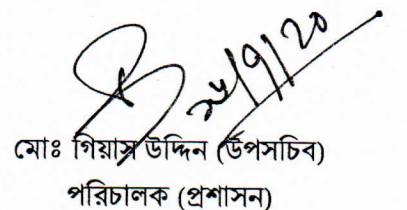 মোঃ গিয়াস উদ্দিন (উপসচিব)
পরিচালক (প্রশাসন)